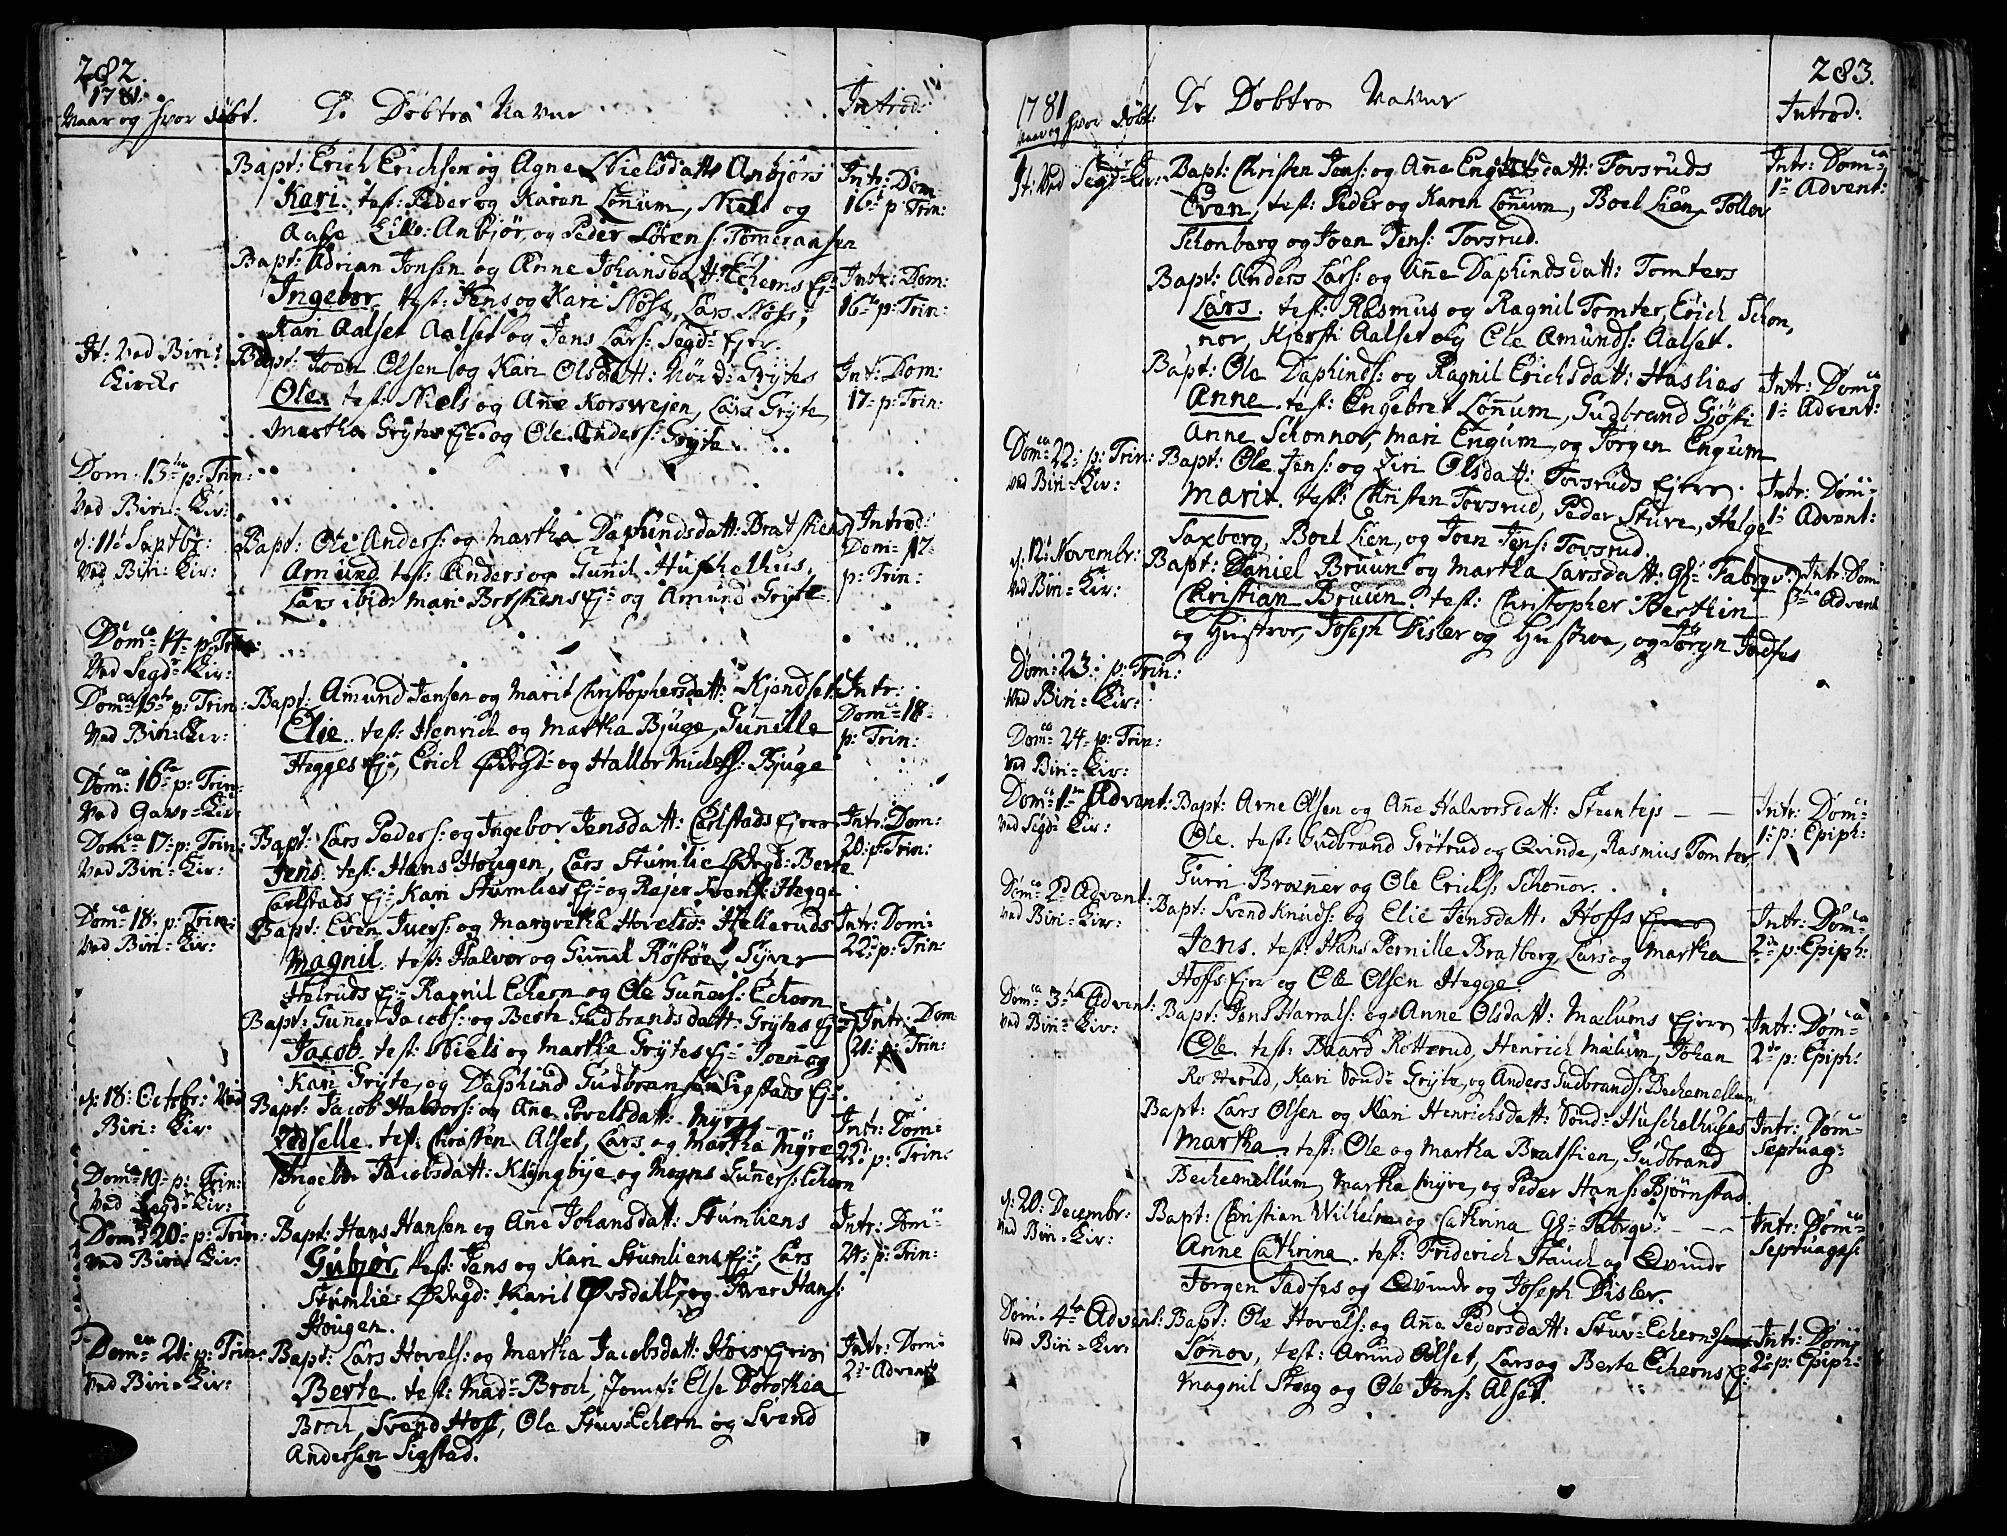 282.
1781.
Naar og hvor døbt.
De Døbtes Navne
Introd:
Bapt: Erich Erichsen og Agne Nielsdatt: Anbjørs
Kari. test: Peder og Karen Lønnum, Niels og
Aase Lille: Anbjør, og Peder Sørens: Tømeraasen
Intr: Dom:
16de p: Trin:
Bapt: Adrian Jonsen og Anne Johansdatt: Echerns Ej:
Ingebor. test: Jens og Kari Støss, Lars Støss,
Kari Aalset Aalset og Jens Lars: Segd: Ejer.
Intr: Dom:
16de p: Trin:
It: Ved Biri:
Kircke
Bapt: Joen Olsen og Kari Olsdatt: Nord: Grytes
Ole. test: Niels og Anne Korsvejen, Lars Gryte,
Martha Grytes Ej: og Ole Anders: Gryte.
Int: Dom:
17. p: Trin:
Dom: 13de p: Trin:
Ved Biri: Kir:
d: 11te Septbr:
Ved Biri: Kir:
Bapt: Ole Anders: og Martha Daphindsdatt: Bratstiens
Amund. test: Anders og Gunil Huskelhus,
Lars ibid: Mari Bratstiens Ej: og Amund Gryte.
Introd:
Dom: 17
p: Trin:
Domca 14. p: Trin:
Ved Segd: Kir:
Domca 15de p: Trin:
Ved Biri: Kir:
Bapt: Amund Jensen og Marit Christophersdatt: Kjendset:
Elie. test: Henrich og Martha Bjuge, Gunnille
Hegges Ej:, Erich Ødegd: og Hallor Michels: Bjuge
Intr:
Domca 18
p: Trin:
Domca 16de p: Trin:
Ved Gaus: Kir:
Domca 17. p: Trin:
Ved Biri: Kir:
Bapt: Lars Peders: og Ingebor Jensdatt: Carlstads Ejere
Jens. test: Hans Hougen, Lars Stumlie Ødegd: Berte
Carlstads Ej: Kari Stumlies Ej: og Rejer Svens: Hegge
Intr: Dom:
20. p: Trin:
Domca 18. p: Trin:
Ved Biri: Kir:
Bapt: Even Ivers: og Margretha Hovelsd: Helleruds
Magnil. test: Halvor og Gunnil Røstøe, Syver
Helruds Ej: Ragnil Echern og Ole Gunners: Echern
Intr: Dom:
22: p: Trin:
Bapt: Gunner Jacobs: og Berte Gudbrandsdatt: Grytes Ej:
Jacob. test: Niels og Martha Grytes Ej: Joen og
Kari Gryte, og Daphind Gudbransen Sigstads Ej:
Intr: Dom
21: p: Trin:
d: 18: Octobr: Ved
Biri: Kir:
Bapt: Jacob Halvors: og Anne Povelsdatt: Myre
Zidselle. test: Christen Alset, Lars og Martha Myre
Ingebor Jacobsdatt: Klyngbye, og Mogns Gunners: Echern
Intr: Dom:
22: p: Trin:
Domca 19. p: Trin:
Ved Segd: Kir:
Domca 20. p: Trin:
Ved Biri: Kir:
Bapt: Hans Hansen og Anne Johansdatt: Stumliens
Gubjør. test: Jens og Kari Stumliens Ej:, Lars
Stumlie: Ødegd: Marit Øvsdatt:, og Iver Hans:
Hougen.
Intr: Dom:
21. p: Trin:
Domca 21: p: Trin:
Ved Biri: Kir:
Bapt: Lars Hovels: og Martha Jacobsdatt: Hovs Ejere
Berte. test: Mad: Broch, Jomf: Else Dorothea
Broch, Svend Hoff, Ole Stuv: Echern og Svend
Andersen Sigstad.
Intr: Dom:
2: Advent:
283.
1781
Naar og hvor døbt:
De Døbtes Navne
Introd:
It: Ved Segd: Kir:
Bapt: Christen Jens: og Anne Engebretsdatt: Tovsruds
Even, test: Peder og Karen Lønnum, Boel Lien, Tollov
Schonberg og Joen Jens: Tovsrud.
Intr: Domca
1: Advent:
Bapt: Anders Lars: og Anne Daphindsdatt: Tomters
Lars. test: Rasmus og Ragnil Tomter, Erich Schon,
nor, Kjersti Aalset og Ole Amunds: Aalset.
Bapt: Ole Daphinds: og Ragnil Erichsdatt: Haslies
Anne. test: Engebret Lønnum, Gudbrand Gjøsti
Anne Schonnor, Mari Engum, og Jørgen Engum
Intr: Domca
1: Advent:
Domca 22: p: Trin:
Ved Biri: Kir:
Bapt: Ole Jens: og Siri Olsdatt: Tovsruds Ejere.
Marit. test: Christen Tovsrud, Peder Sture, Helge
Saxberg, Boel Lien, og Joen Jens: Tovsrud.
Intr: Dom:
1: Advent:
d: 12: Novembr:
Ved Biri: Kir:
Bapt: Daniel Bruun og Martha Larsdatt: Gs: Fabrqv:
Christian Bruun. test: Christopher Berthin
og Hustroe, Joseph Disler og Hustroe, og Jørgn Jadfes
Intr: Dom
3die Advent
Dom: 23: p: Trin:
Ved Biri: Kir:
Domca 24. p: Trin:
Ved Biri: Kir:
Domca 1ma Advent:
Ved Segd: Kir:
Bapt: Arne Olsen og Anne Halvorsdatt: Steentejs
Ole. test: Gudbrand Grøtrud og Qvinde, Rasmus Tomter,
Turn Brænner og Ole Erichs: Schonnor.
Intr: Domca
1: p: Epiph:
Domca 2d Advent:
Ved Biri: Kir:
Bapt: Svend Knuds: og Elie Jensdatt: Hoffs
Jens. test: Hans Pernille Bratberg, Lars og Martha
Hoffs Ejer og Ole Olsen Hegge.
Intr: Domca
2de p: Epiph:
Domca 3tia Advent:
Ved Biri: Kir:
Bapt: Jens Harrals: og Anne Olsdatt: Mælums Ejere
Ole. test: Baard Rotterud, Henrich Mælum, Johan
Rotterud, Kari Sønd: Gryte, og Anders Gudbrands: Bechemellum
Intr: Domca
2de p: Epiph:
Bapt: Lars Olsen og Kari Henrichsdatt: Sønd: Huschelhuses
Martha. test: Ole og Martha Bratstien, Gudbrand
Bechemellum, Martha Myre, og Peder Hans: Bjørnstad
Intr: Domca
Septuag:
d: 20: Decembr:
Ved Biri: Kir:
Bapt: Christian Wilhelm og Cathrina Gs: Fabrqv:
Anne Cathrina. test: Friderich Stauch og Qvinde
Jørgen Jadfes og Qvinde og Joseph Disler.
Intr: Domca
Septuages:
Dom: 4ta Advent:
Ved Biri: Kir:
Bapt: Ole Hovels: og Anne Pedersdatt: Stuv: Echerns
Sønnov, test: Amund Alset, Lars og Berte Echerns Ej:
Magnil Skeeg og Ole Jons: Alset.
Intr: Domca
2: p: Epiph: